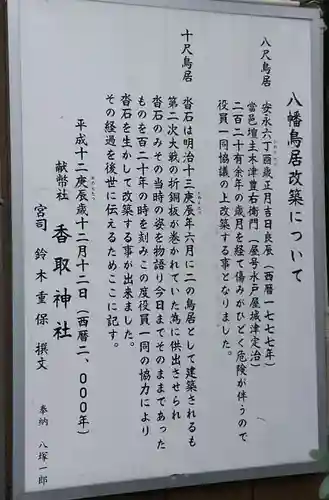 八幡鳥居改築について
八尺鳥居　安永六丁酉歳正月吉日良辰（西暦一七七七年）
当邑壇主木津豊右衛門（屋号水戸屋城津定治）
二百二十有余年の歳月を経て傷みがひどく危険が伴うので
役員一同協議の上改築する事となりました。
十尺鳥居　沓石は明治十三庚辰年六月に二の鳥居として建築されるも
第二次大戦の折銅板が巻かれていた為に供出させられ
沓石のみその当時の姿を物語り今日までそのままであった
ものを百二十年の時を刻みこの度役員一同の協力により
沓石を生かして改築する事が出来ました。
その経過を後世に伝えるためここに記す。
平成十二庚辰歳十二月十二日（西暦二、〇〇〇年）
献幣社　香取神社
宮司　鈴木重保　撰文
奉納　八塚一郎